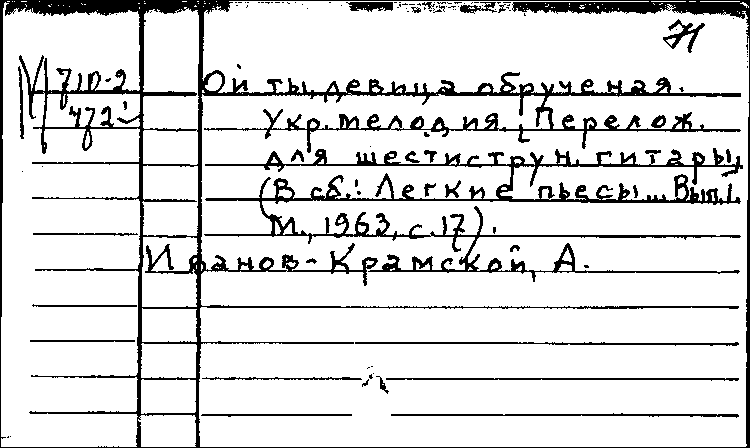 Н
М 710-2
472
Ой ты, девица обрученая.
Укр. мелодия. Перелож.
для шестиструн. гитары,
(В сб.: Легкие пьесы... Вып.1.
М., 1963, с.17).
Иванов-Крамской, А.